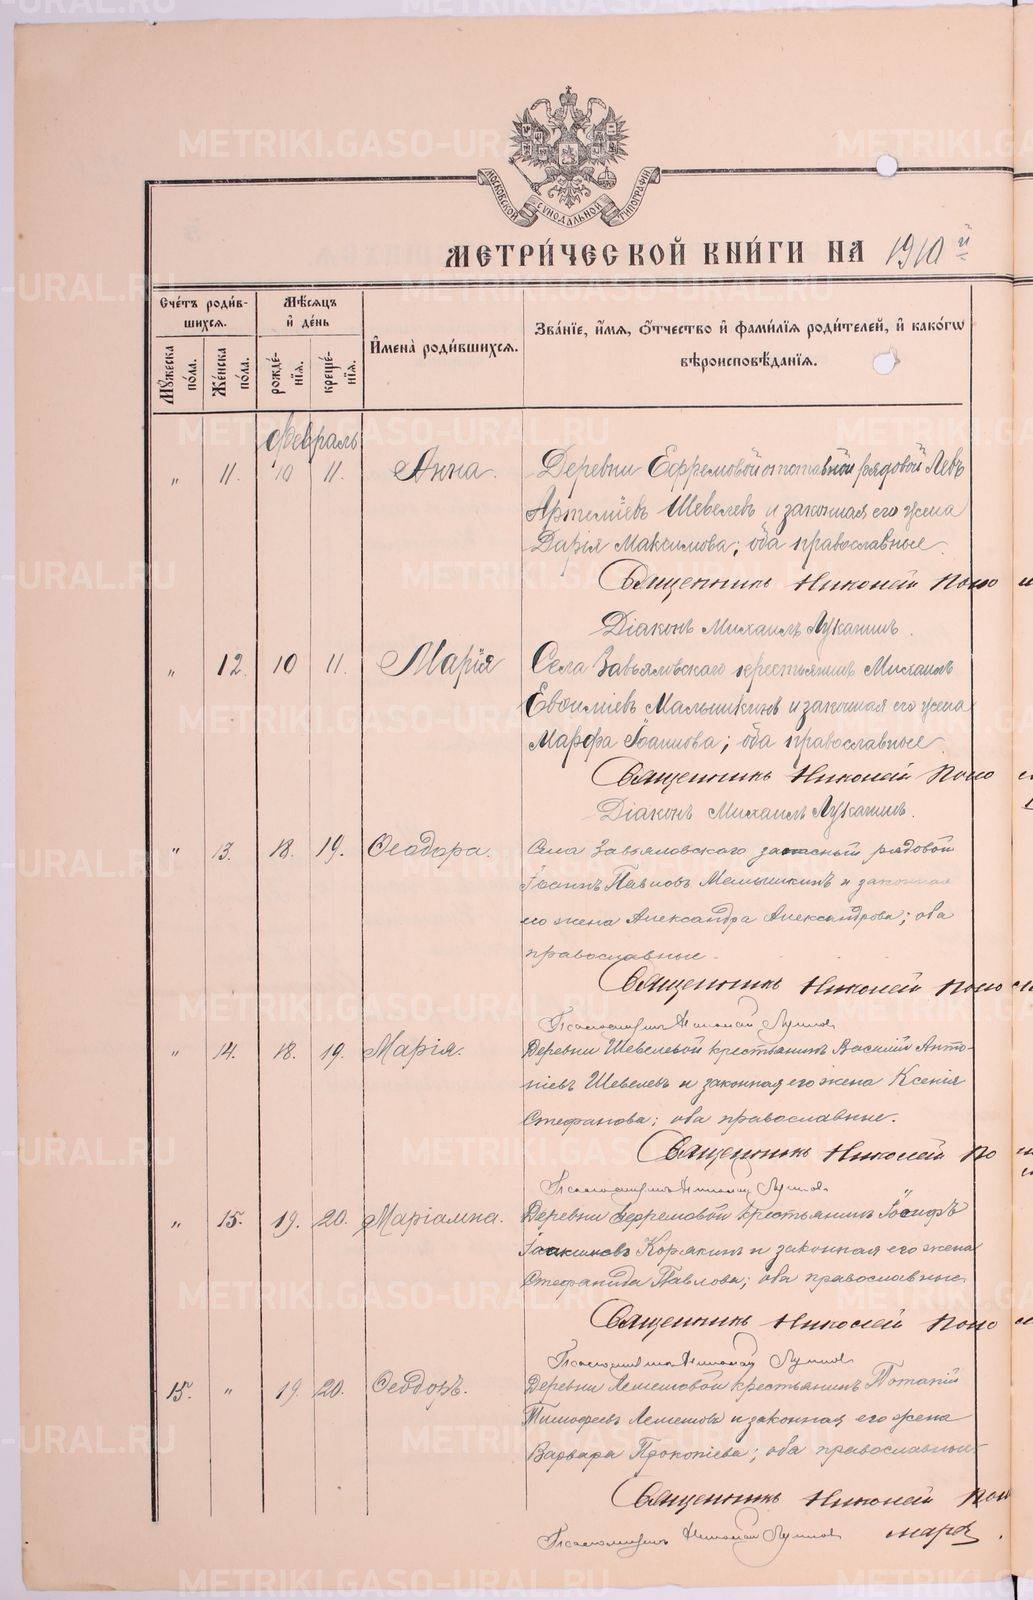 МОСКОВСКОЙ СУНОДАЛЬНОЙ ТИПОГРАФІИ
МЕТРИ́ЧЕСКОЙ КНИ́ГИ НА 1910й
Сче́тъ роди́в-
шихся.
Мѣ́сяцъ
и҆ де́нь
Мꙋ́жеска по́ла.
Же́нска по́ла.
рожде́-
нїя.
креще́-
нїя.
И҆мена̀ роди́вшихся.
Зва́нїе, и҆́мя, ѻ҆́тчество и҆ фами́лїя роди́телей, и҆ како́гѡ
вѣроисповѣ́данїя.
Февраль
„ 11. 10 11. Анна. Деревни Ефремовой отставной рядовой Левъ
Артеміевъ Шевелевъ и законная его жена
Дарія Максимова; оба православные
Священникъ Николай Поно
Діаконъ Михаилъ Лукатинъ.
„ 12. 10 11. Марія Села Завьяловскаго крестьянинъ Михаилъ
Евѳиміевъ Малышкинъ и законная его жена
Марфа Іоаннова; оба православные
Священникъ Николай Поно
Діаконъ Михаилъ Лукатинъ.
„ 13. 18. 19. Ѳеодора. Села Завьяловскаго запасный рядовой
Іоаннъ Павловъ Малышкинъ и законная
его жена Александра Александрова; оба
православные.
Священникъ Николай Поно
Псаломщикъ
„ 14. 18. 19. Марія. Деревни Шевелевой крестьянинъ Василій Анто-
ніевъ Шевелевъ и законная его жена Ксенія
Стефанова; оба православные.
Священникъ Николай По
Псаломщикъ
„ 15. 19. 20. Маріамна. Деревни Ефремовой крестьянинъ Іосифъ
Іоакимовъ Корякинъ и законная его жена
Стефанида Павлова; оба православные.
Священникъ Николай Поно
Псаломщикъ
15. „ 19. 20. Ѳеодоръ. Деревни Лемешовой крестьянинъ Потапій
Тимофеевъ Лемешовъ и законная его жена
Варвара Прокопіева; оба православные
Священникъ Николай Пон
Псаломщикъ марв
METRIKI.GASO-URAL.RU